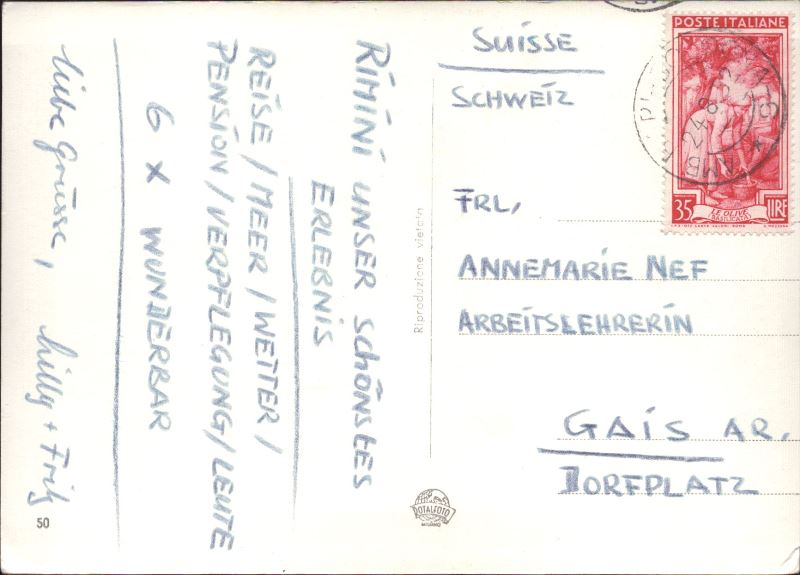 RIMINI UNSER SCHÖNSTES
ERLEBNIS
REISE / MEER / WETTER /
PENSION / VERPFLEGUNG / LEUTE
6 X WUNDERBAR
liebe Grüsse, Milly + Fritz
50
Riproduzione vietata
ROTALFOTO
MILANO
SUISSE
SCHWEIZ
POSTE ITALIANE
LE OLIVE
BASILICATA
35 LIRE
24.8.52
FRL,
ANNEMARIE NEF
ARBEITSLEHRERIN
GAIS AR.
DORFPLATZ